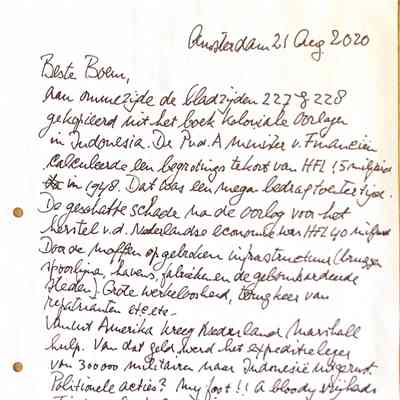 Amsterdam 21 Aug 2020
Beste Boem,
aan ommezijde de bladzijden 227 & 228
gekopieerd uit het boek koloniale oorlogen
in Indonesia. De P.v.d.A minister v. Financiën
calculeerde een begrotings tekort van HFL 1,5 miljard
in 1948. Dat was een mega bedrag toentertijd.
De geschatte schade na de oorlog voor het
herstel v.d. Nederlandse economie was HFL 40 miljard
Door de moffen opgebroken infrastructuur (bruggen
spoorlijnen, havens, fabrieken en de gebombardeerde
steden). Grote werkeloosheid, terugkeer van
repatrianten etc etc-
Vanuit Amerika kreeg Nederland Marshall
hulp. Van dat geld werd het expeditieleger
van 300000 militairen naar Indonesië uitgerust.
Politionele acties? My foot!! A bloody vrijheids